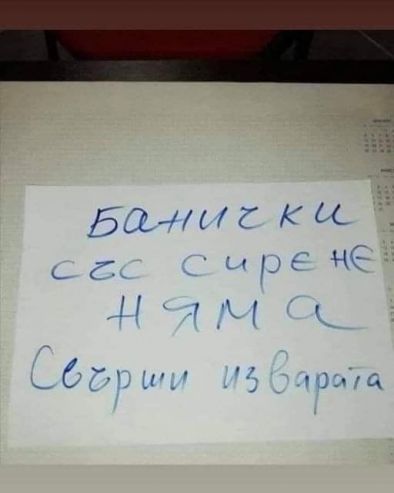 Банички
със сирене
няма
Свърши изварата